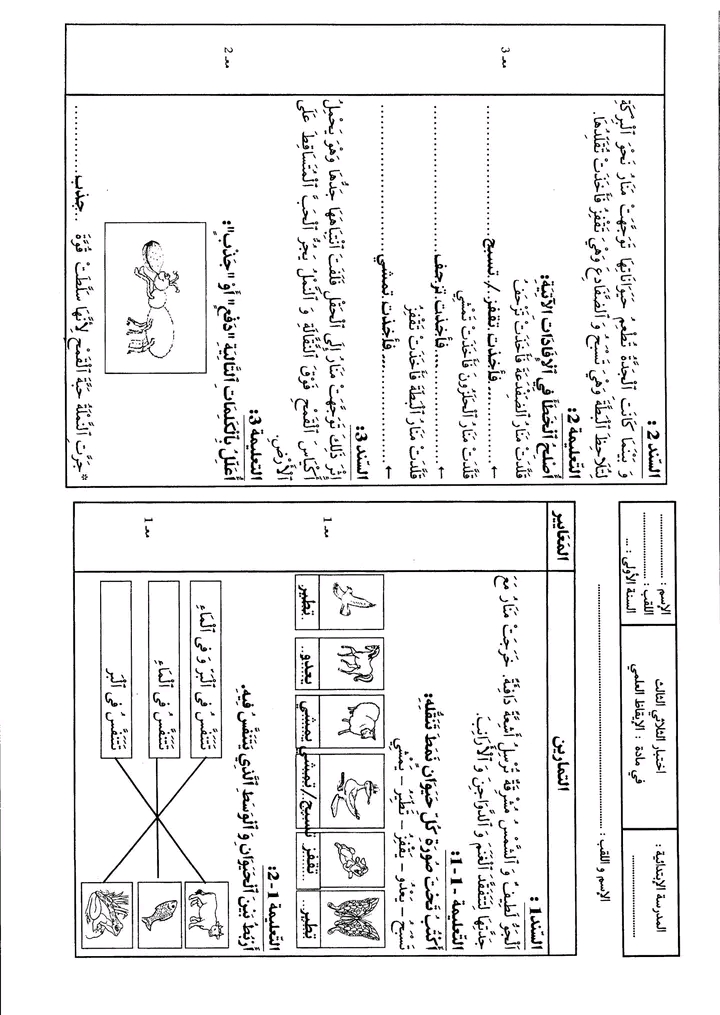 المدرسة الإبتدائية :
اختبار الثلاثي الثالث
في مادة : الإيقاظ العلمي
الإسم : ................
اللقب : ................
السنة الأولى : ...
الإسم و اللقب : ................................................
التمارين
المعايير
السند1 :
اَلْجَوُّ لَطِيفٌ وَ الشَّمْسُ مُشْرِقَةٌ تُرْسِلُ أَشِعَّةً دَافِئَةً. خَرَجَتْ مَنَارُ مَعَ
جَدَّتِهَا لِتَتَفَقَّدَ الْغَنَمَ وَ الدَّوَاجِنَ وَ الْأَرَانِبَ.
التعليمة -1-1:
أَكْتُبُ تَحْتَ صُورَةِ كُلِّ حَيَوَانٍ نَمَطَ تَنَقُّلِهِ:
تَسْبَحُ – يَعْدُو – يَقْفِزُ – تَطِيرُ – يَمْشِي
تطير..
تقفز
تسبح/ تمشي
يمشي
يعدو..
تطير
معـ1
التعليمة 1-2:
أَرْبِطُ بَيْنَ الْحَيَوَانِ وَ الْوَسَطِ الَّذِي يَتَنَفَّسُ فِيهِ.
يَتَنَفَّسُ فِي الْبَرِّ وَ فِي الْمَاءِ
يَتَنَفَّسُ فِي الْمَاءِ
يَتَنَفَّسُ فِي الْبَرِّ
معـ1
السند 2 :
وَ بَيْنَمَا كَانَتْ الْجَدَّةُ تُطْعِمُ حَيَوَانَاتِهَا تَوَجَّهَتْ مَنَارُ نَحْوَ الْبِرْكَةِ
لِتُلَاحِظَ الْبَطَّةَ وَهْيَ تَسْبَحُ وَ الضَّفَادِعَ وَهْيَ تَقْفِزُ فَأَخَذَتْ تُقَلِّدُهَا.
التعليمة 2:
أُصْلِحُ الْخَطَأَ فِي الْإِفَادَاتِ الْآتِيَةِ:
قَلَّدَتْ مَنَارُ الضِّفْدَعَةَ فَأَخَذَتْ تَزْحَفُ
← ................فأخذت تقفز./ تسبح................
قَلَّدَتْ مَنَارُ الْحَلَزُونَ فَأَخَذَتْ تَمْشِي
← ................فأخذت تزحف................
قَلَّدَتْ مَنَارُ الْبَطَّةَ فَأَخَذَتْ تَقْفِزُ
← ................فأخذت تمشي................
معـ3
السند 3:
إِثْرَ ذَلِكَ تَوَجَّهَتْ مَنَارُ إِلَى الْحَقْلِ فَلَفَتَ انْتِبَاهَهَا جَدُّهَا وَهُوَ يَحْمِلُ
أَكْيَاسَ الْقَمْحِ فَوْقَ النَّقَّالَةِ وَ النَّمْلُ يَجُرُّ الْحَبَّ الْمُتَسَاقِطَ عَلَى
الْأَرْضِ.
التعليمة 3:
أُعَلِّلُ بِالْكَلِمَاتِ التَّالِيَةِ "دَفْعٍ" أَوْ "جَذْبٍ":
معـ2
*جَرَّتِ النَّمْلَةُ حَبَّةَ الْقَمْحِ لِأَنَّهَا سَلَّطَتْ قُوَّةَ ..جذب................